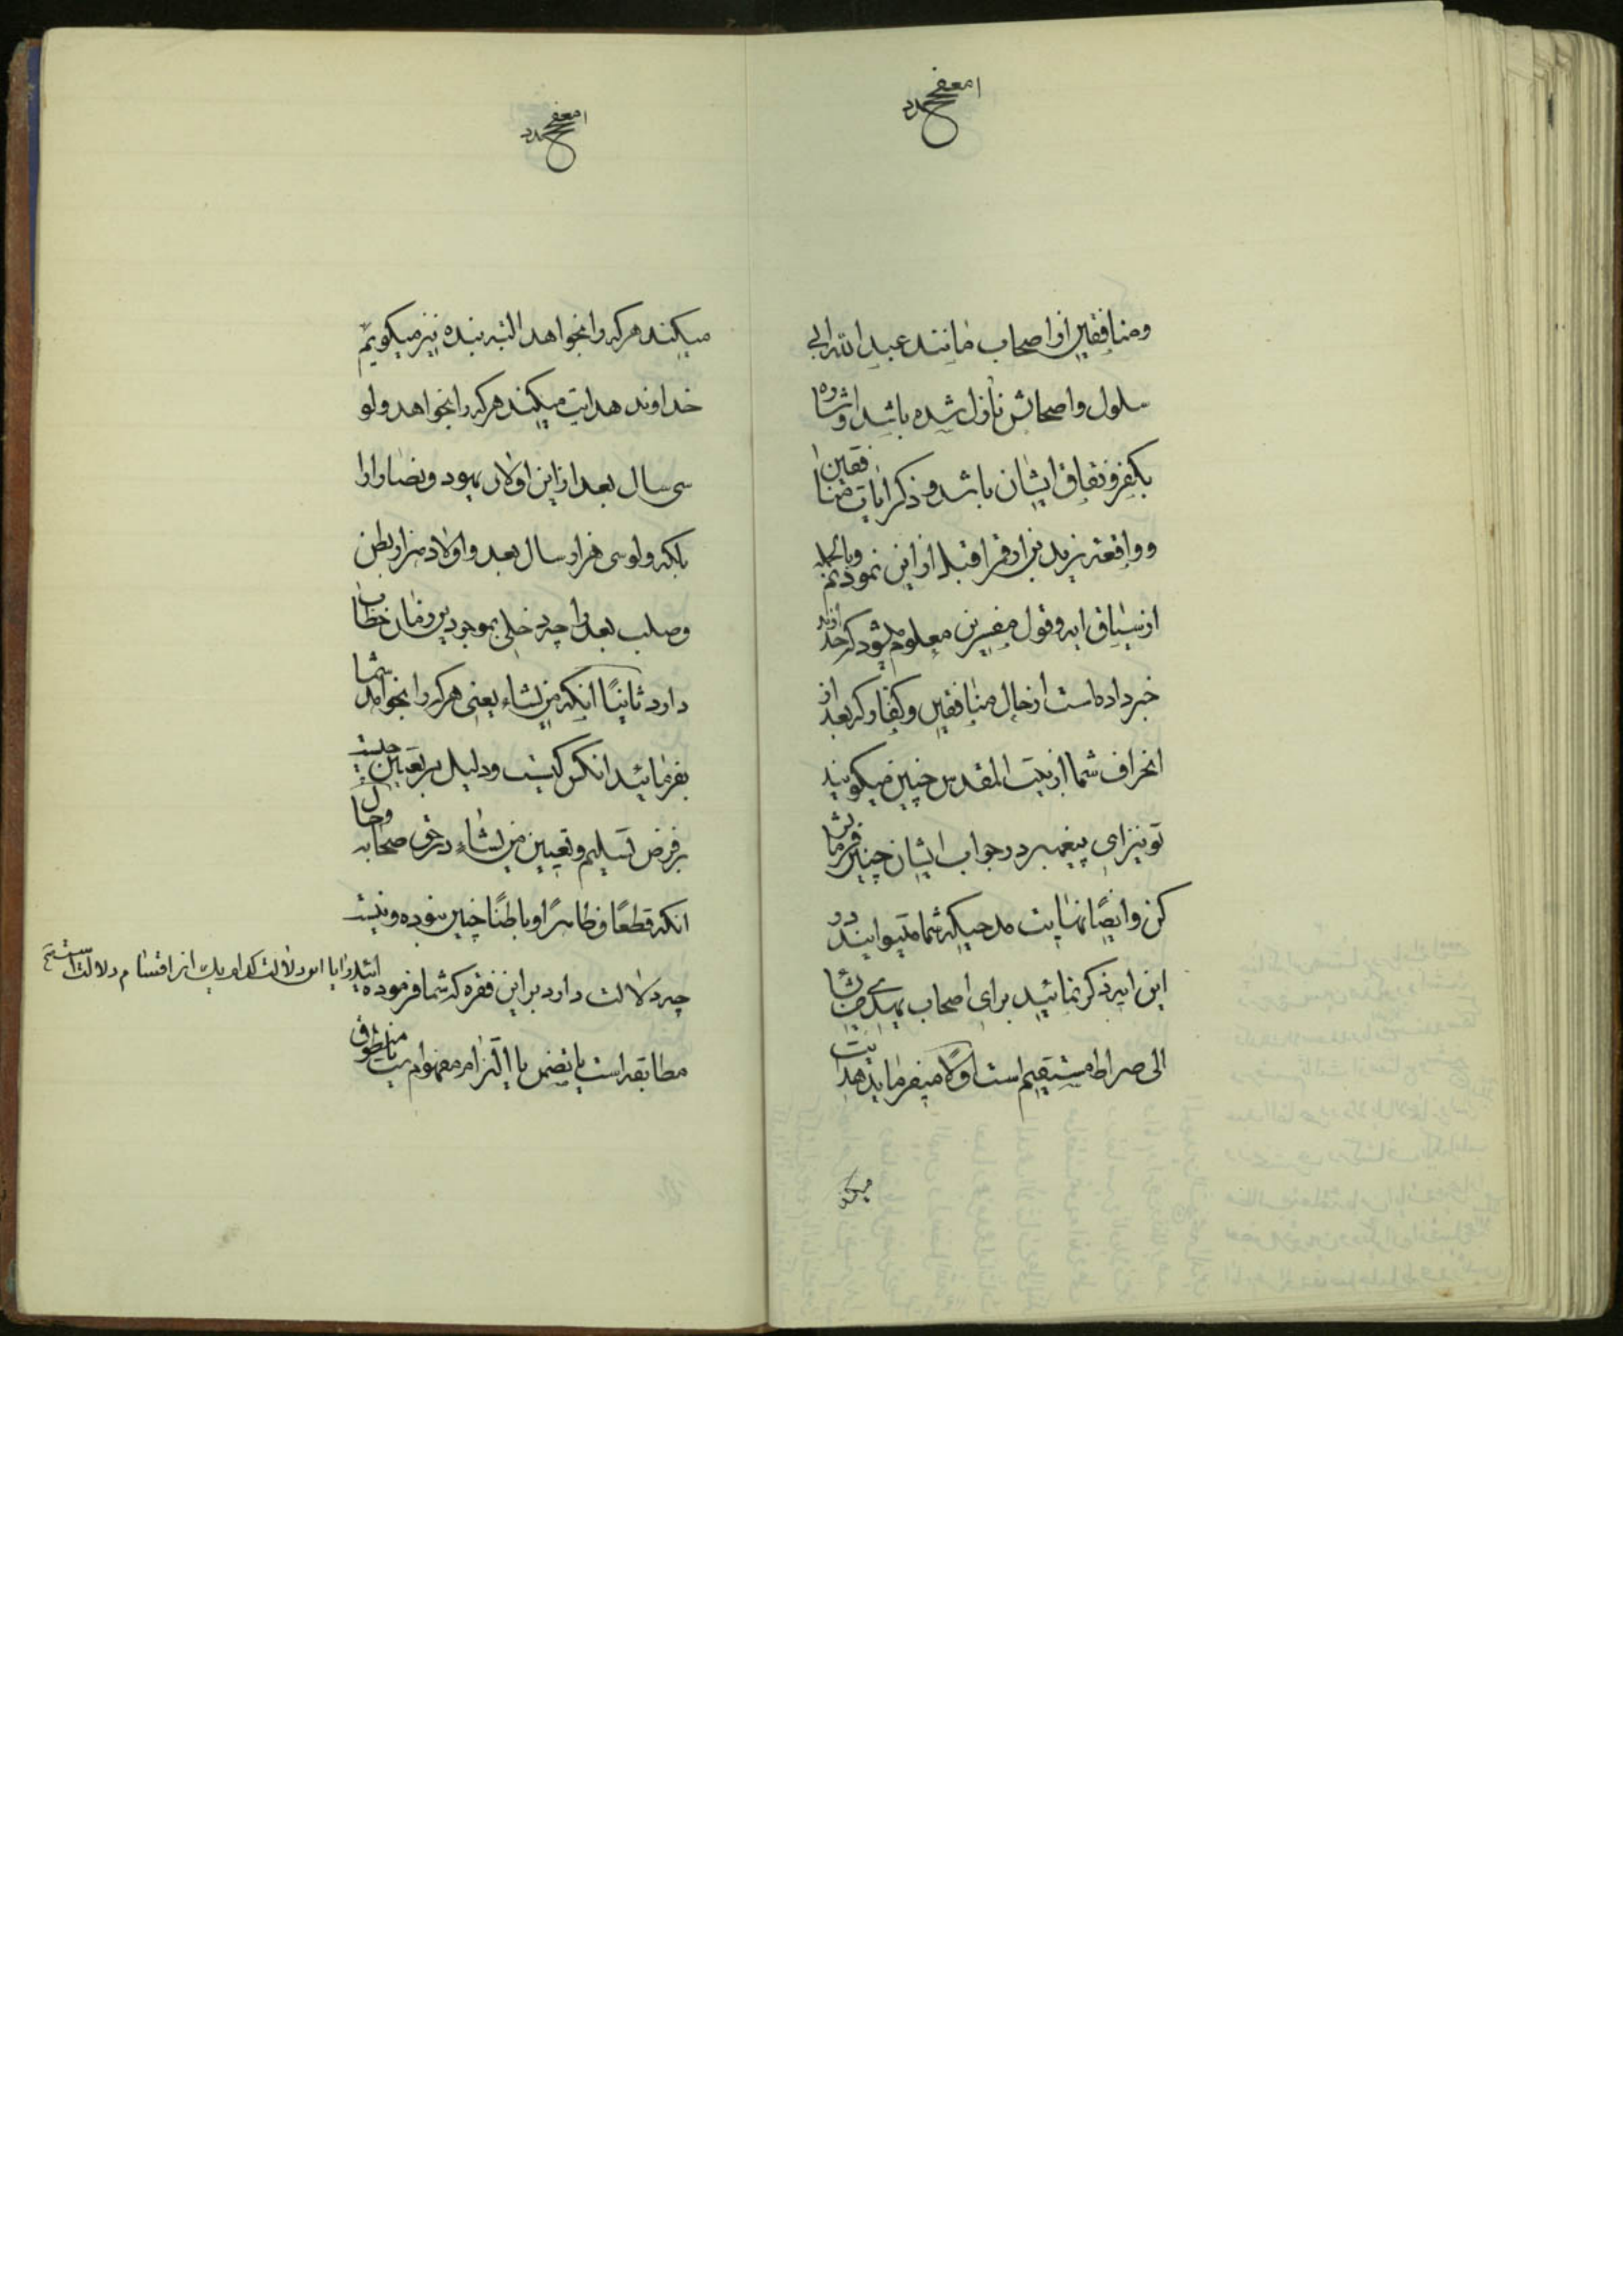 ومنافقین از اصحاب مانند عبد الله ابی
سلول واصحابش نازل شده باشد واشاره
بکفر و نفاق ایشان باشد و ذکر ایات منافقین را
وواقعه زید بن ارقم را قبل از این نمودیم وبالجمله
از سیاق ایه وقول مفسرین معلوم میشود که خداوند
خبر داده است از حال منافقین وکفار که بعد از
انحراف شما از بیت المقدس چنین میکویند
تو نیز ای پیغمبر در جواب ایشان چنین فرمایش
کن وایضًا نهایت مدحیکه شما میتوانید در
این ایه ذکر نمائید برای اصحاب یهدی من یشا
الی صراط مستقیم است اولًا میفرماید هدایت
میکند
میکند هرکه را بخواهد البته بنده نیز میکویم
خداوند هدایت میکند هرکه را بخواهد ولو
سی سال بعد از این اولاد یهود ونصارا را
بلکه ولو سی هزار سال بعد واولاد هزار بطن
وصلب بعد را چه دخلی بموجودین زمان خطاب
دارد ثانیًا انکه من یشاء یعنی هرکه را بخواهد شما
بفرمائید انکس کیست ودلیل بر تعیین چیست
برفرض تسلیم وتعیین من یشاء در حق صحابه وحال
انکه قطعًا وظاهرًا وباطنًا چنین نبوده ونیست
چه دلالت دارد براین فقره که شما فرموده
اید وایا این دلالت کدام یک از اقسام دلالت است
مطابقه است یا تضمن یا التزام مفهوم است یا منطوق